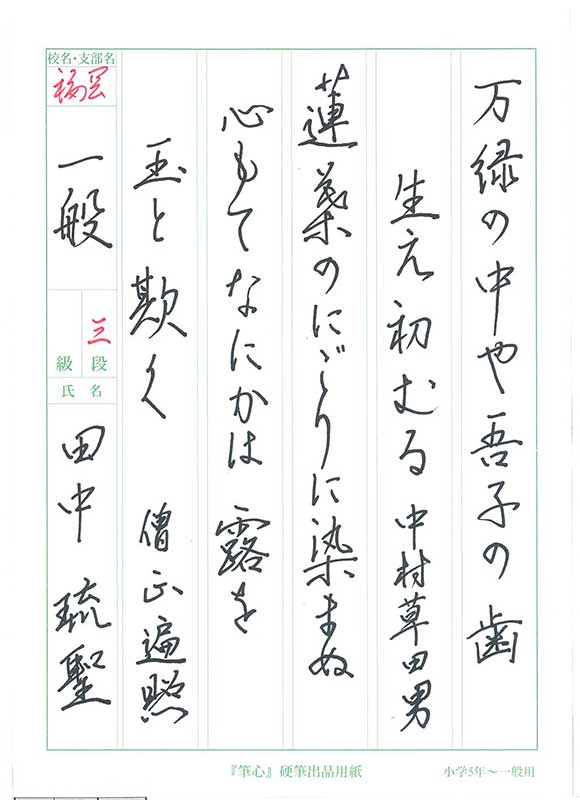 万緑の中や吾子の歯
生え初むる 中村草田男
蓮葉のにごりに染まぬ
心もてなにかは露を
玉と欺く 僧正遍照
校名・支部名
福岡
一般
三
級 段
氏 名
田中 琉聖
『筆心』硬筆出品用紙
小学5年〜一般用